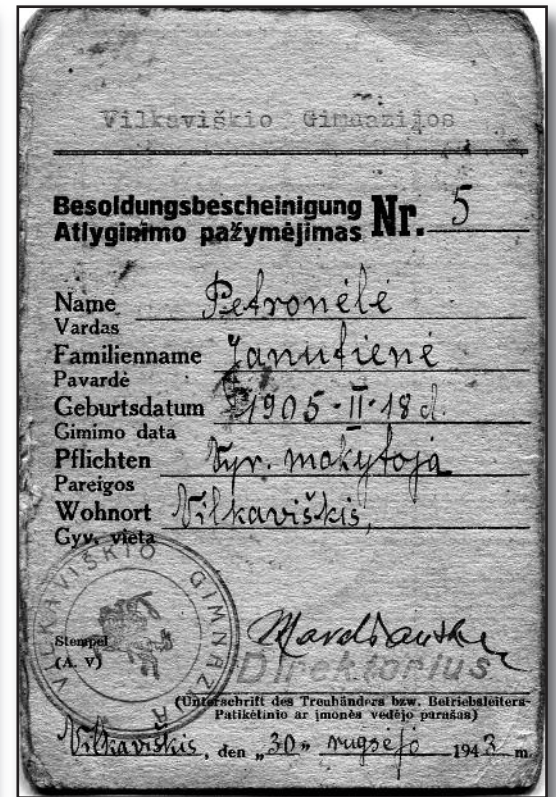 Vilkaviškio Gimnazijos
Besoldungsbescheinigung Nr. 5
Atlyginimo pažymėjimas
Name Petronėlė
Vardas
Familienname Janutienė
Pavardė
Geburtsdatum 1905-II-18 d.
Gimimo data
Pflichten Vyr. mokytoja
Pareigos
Wohnort Vilkaviškis,
Gyv. vieta
VILKAVIŠKIO GIMNAZIJA
Stempel
(A. V)
Direktorius
(Unterschrift des Treuhänders bzw. Betriebsleiters-
Patikėtinio ar įmonės vedėjo parašas)
Vilkaviškis, den „30” rugsėjo 1943 m.